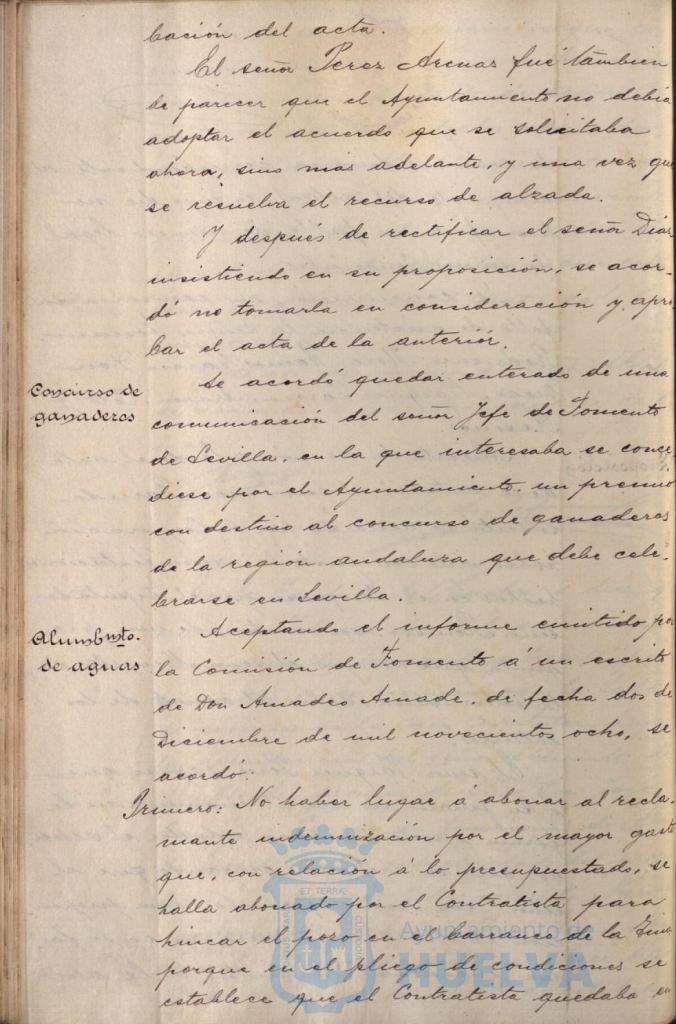 bación del acta.
El señor Perez Arenas fué tambien
de parecer que el Ayuntamiento no debia
adoptar el acuerdo que se solicitaba
ahora, sino mas adelante, y una vez que
se resuelva el recurso de alzada.
Y después de rectificar el señor Diaz
insistiendo en su proposición, se acor-
dó no tomarla en consideración y apro
bar el acta de la anteriór.
Concurso de
ganaderos
Se acordó quedar enterado de una
comunicación del señor Jefe de Fomento
de Sevilla, en la que interesaba se conce-
diese por el Ayuntamiento, un premio
con destino al concurso de ganaderos
de la región andaluza que debe cele-
brarse en Sevilla.
Alumbmto.
de aguas
Aceptando el informe emitido por
la Comisión de Fomento á un escrito
de Don Amadeo Amade, de fecha dos de
Diciembre de mil novecientos ocho, se
acordó:
Primero: No haber lugar á abonar al recla-
mante indemnización por el mayor gasto
que, con relación á lo presupuestado, se
halla abonado por el Contratista para
hincar el pozo en el barranco de la
porque en el pliego de condiciones se
establece que el Contratista quedaba en
ET TERRÆ
Ayuntamiento de
HUELVA